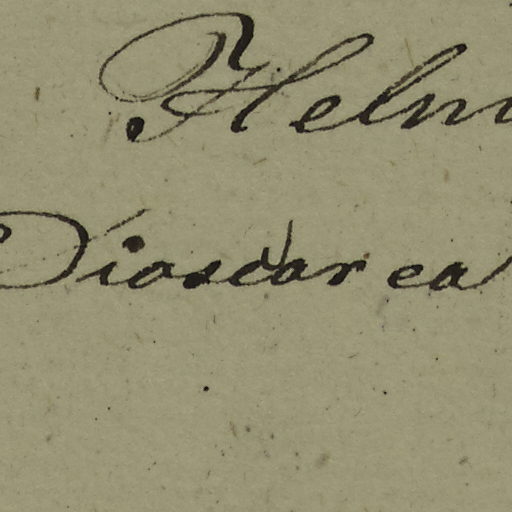 Helm
Dioscorea